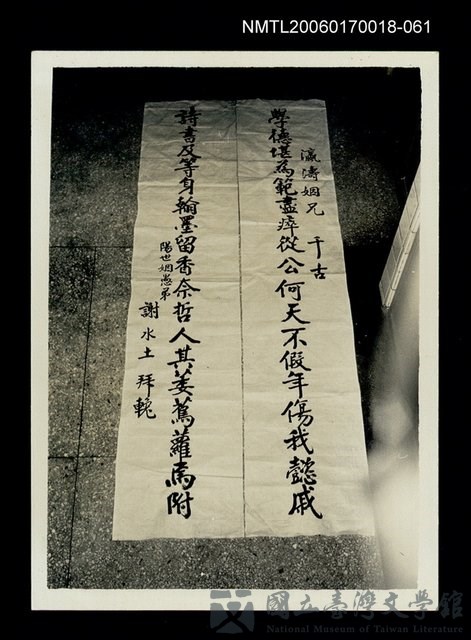 NMTL20060170018-061
瀛濤姻兄 千古
學德堪為範盡瘁從公何天不假年傷我懿戚
詩書及等身翰墨留香奈哲人其萎蔦蘿焉附
陽世姻愚弟
謝水土 拜輓
國立臺灣文學館
National Museum of Taiwan Literature